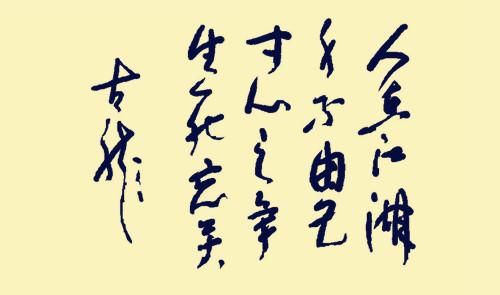 人在江湖
身不由己
寸心之
生死忘
古龍